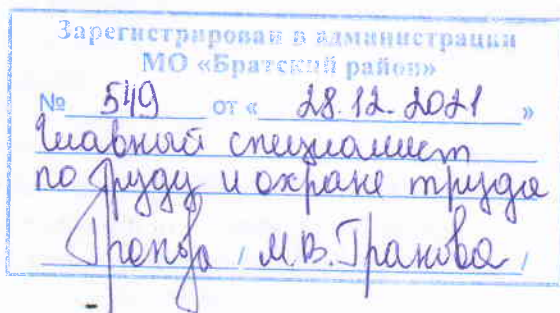 Зарегистрирован в администрации
МО «Братский район»
№ 549 от « 28.12.2021 »
Главный специалист
по труду и охране труда
/ М.В. Гранова /